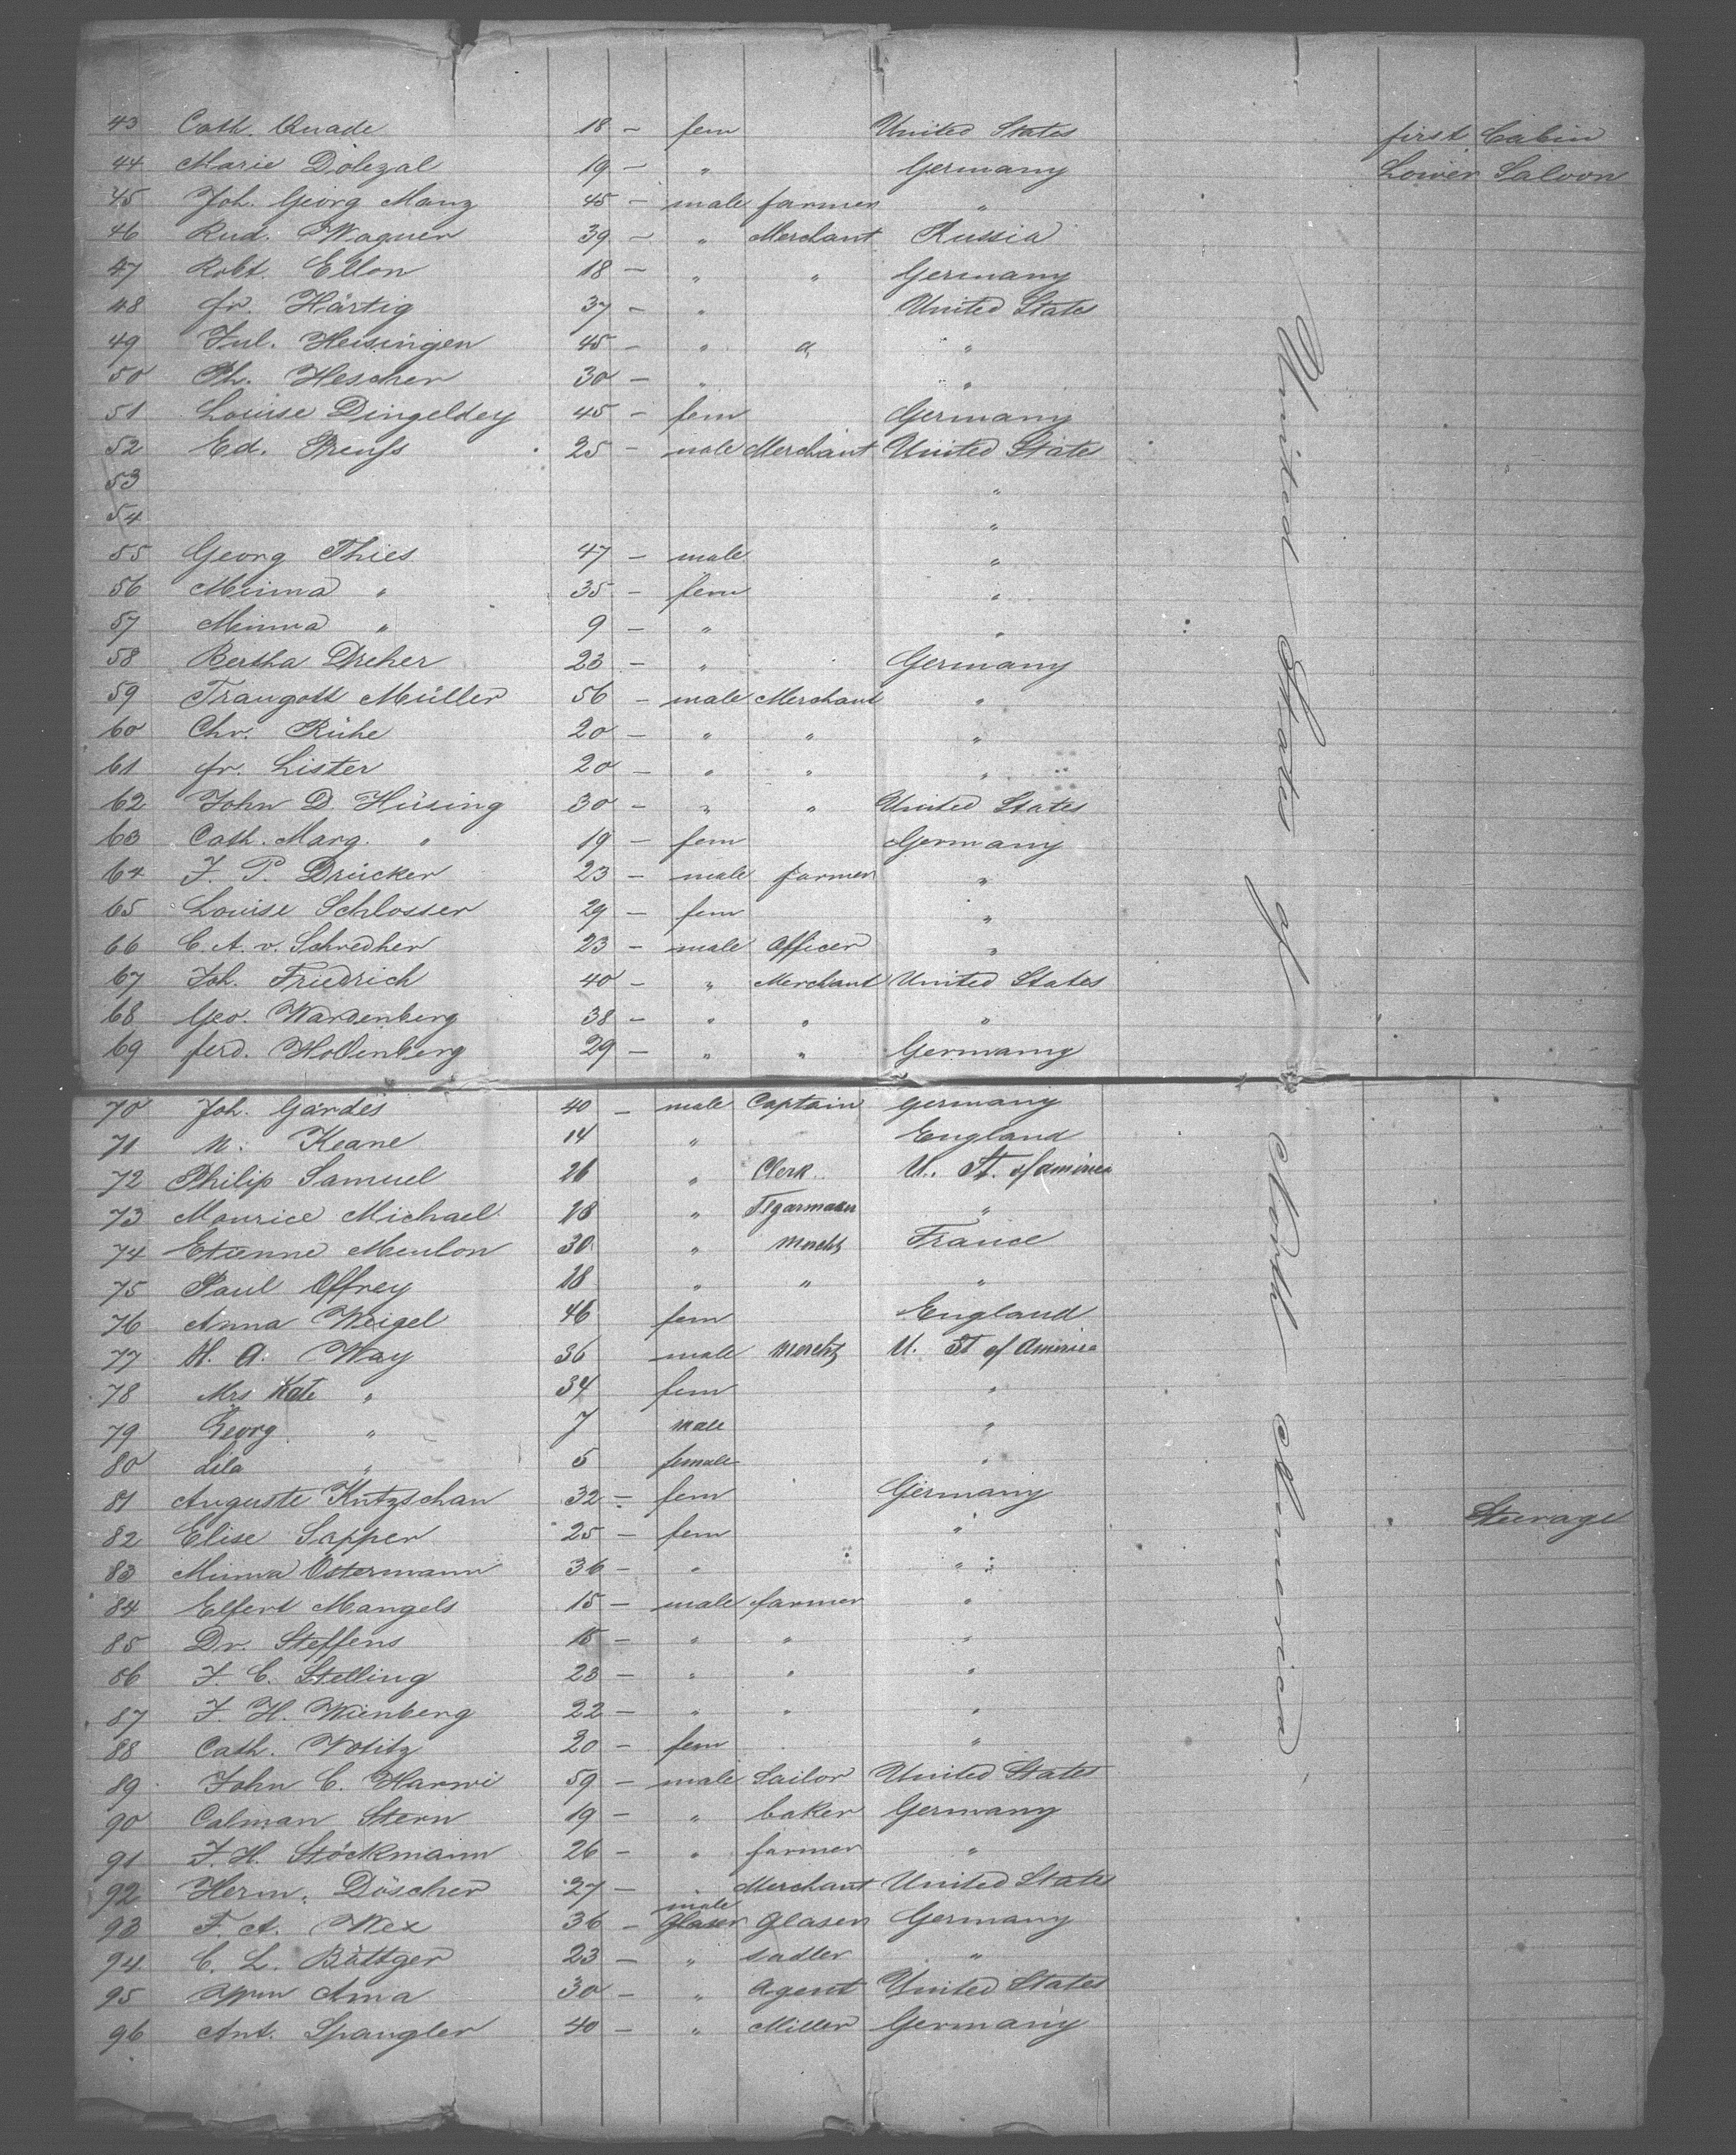 43 Cath. Quade 18 – fem United States first Cabin
44 Marie Dolezal 19 – " Germany Lower Saloon
45 Joh. Georg Manz 45 – male farmer "
46 Rud. Wagner 39 – " Merchant Russia
47 Robt. Ellon 18 – " " Germany
48 fr. Härtig 37 – " United States
49 Jul. Heisingen 45 – " " "
50 Ph. Hescher 30 – " "
51 Louise Dingeldey 45 – fem Germany
52 Ed. Preuss 25 – male Merchant United States
53 "
54 "
55 Georg Thies 47 – male "
56 Minna " 35 – fem "
57 Minna " 9 – " "
58 Bertha Dreher 23 – " Germany
59 Traugott Müller 56 – male Merchant "
60 Chr. Rühe 20 – " " "
61 fr. Lister 20 – " " "
62 John D. Hüsing 30 – " " United States
63 Cath. Marg. " 19 – fem Germany
64 J. P. Drücker 23 – male farmer "
65 Louise Schlosser 29 – fem "
66 C. A. v. Schredher 23 – male Officer "
67 Joh. Friedrich 40 – " Merchant United States
68 Geo. Wardenberg 38 – " " "
69 ferd. Hollenberg 29 – " " Germany
70 Joh. Gärdes 40 – male Captain Germany
71 N. Keane 14 " England
72 Philip Samuel 26 " Clerk U. St. of America
73 Maurice Michael 28 " "
74 Etienne Meulon 30 " Mercht France
75 Paul Offrey 28 " " "
76 Anna Weigel 46 fem England
77 H. A. Way 36 male Mercht U. St of America
78 Mrs Kate " 34 fem "
79 Georg " 7 male "
80 Lila " 5 female "
81 Auguste Kutzschan 32 – fem Germany
82 Elise Sapper 25 – fem " Steerage
83 Minna Ostermann 36 – " "
84 Elfert Mangels 15 – male farmer "
85 Dr. Steffens 15 – " " "
86 J. C. Stelling 28 – " " "
87 J. H. Wienberg 22 – " " "
88 Cath. Wotitz 20 – fem "
89 John C. Harwi 59 – male Sailor United States
90 Calman Stern 19 – " baker Germany
91 J. H. Stöckmann 26 – " farmer "
92 Herm. Döscher 27 – " Merchant United States
93 F. A. Wex 36 – male Glaser Glaser Germany
94 C. L. Böttger 23 – " sadler "
95 Wm Ama 30 – " Agent United States
96 Ant. Spangler 40 – " Miller Germany
United States of North America